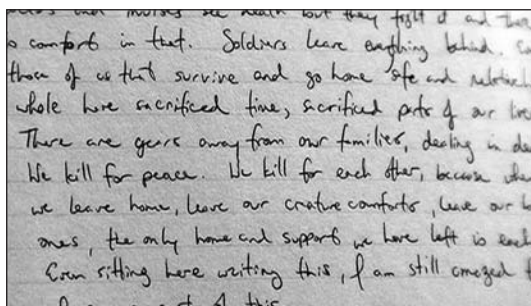 and nurses see death but they fight it and
comfort in that. Soldiers leave everything behind.
those of us that survive and go home safe and relatively
whole have sacrificed time, sacrificed parts of our
There are years away from our families, dealing in
We kill for peace. We kill for each other, because
we leave home, leave our creature comforts, leave our
ones, the only home and support we have left is each
Even sitting here writing this, I am still amazed
of this